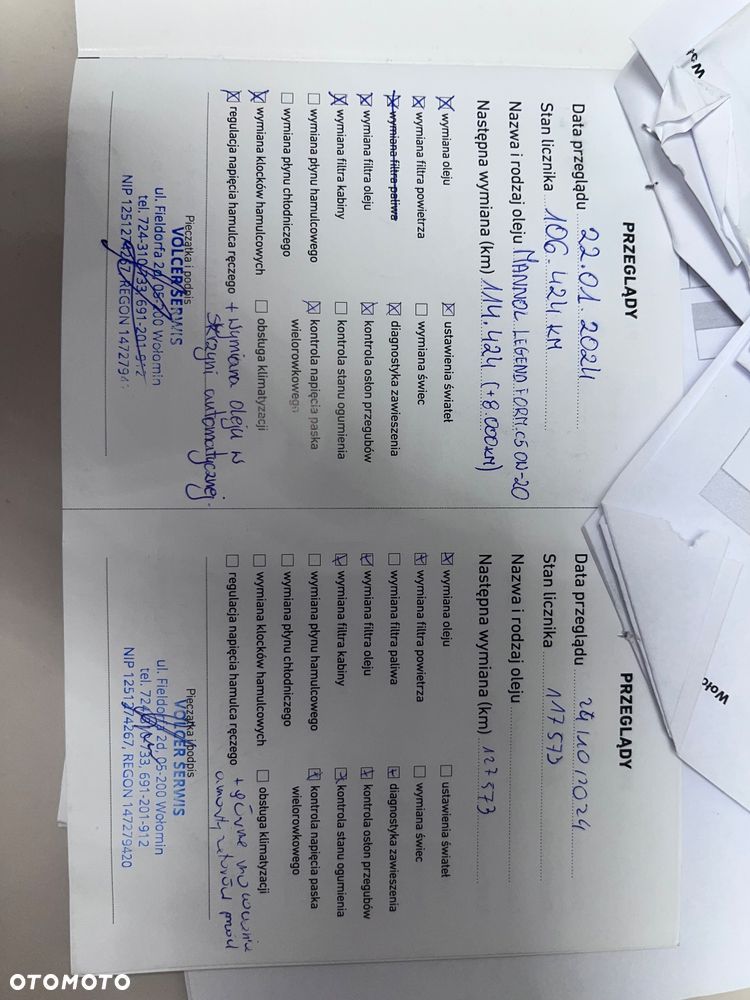 PRZEGLĄDY
Data przeglądu 22.01.2024
Stan licznika 106.424 KM
Nazwa i rodzaj oleju MANNOL LEGEND FORM.C5 0W-20
Następna wymiana (km) 114.424 (+8.000KM)
wymiana oleju
ustawienia świateł
wymiana filtra powietrza
wymiana świec
wymiana filtra paliwa
diagnostyka zawieszenia
wymiana filtra oleju
kontrola osłon przegubów
wymiana filtra kabiny
kontrola stanu ogumienia
wymiana płynu hamulcowego
kontrola napięcia paska
wielorowkowego
wymiana płynu chłodniczego
wymiana klocków hamulcowych
obsługa klimatyzacji
regulacja napięcia hamulca ręcznego
+ wymiana oleju w
skrzyni automatycznej.
Pieczątka i podpis
VOLCER SERWIS
ul. Fieldorfa 2d, 05-200 Wołomin
tel. 724-310-733, 691-201-912
NIP 1251274267, REGON 1472794
PRZEGLĄDY
Data przeglądu 24/10/2024
Stan licznika 117573
Nazwa i rodzaj oleju
Następna wymiana (km) 127573
wymiana oleju
ustawienia świateł
wymiana filtra powietrza
wymiana świec
wymiana filtra paliwa
diagnostyka zawieszenia
wymiana filtra oleju
kontrola osłon przegubów
wymiana filtra kabiny
kontrola stanu ogumienia
wymiana płynu hamulcowego
kontrola napięcia paska
wielorowkowego
wymiana płynu chłodniczego
wymiana klocków hamulcowych
obsługa klimatyzacji
regulacja napięcia hamulca ręcznego
+ górne mocowanie
amortyzatorów przód
Pieczątka i podpis
VOLCER SERWIS
ul. Fieldorfa 2d, 05-200 Wołomin
tel. 724-310-733, 691-201-912
NIP 1251274267, REGON 147279420
OTOMOTO